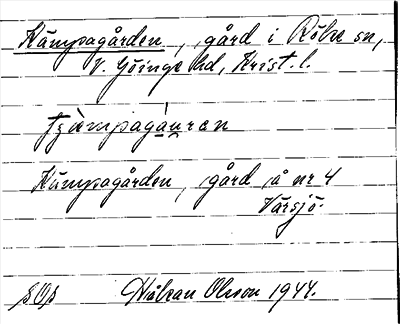 Kämpagården, gård i Röke sn,
V. Göinge hd, Krist. l.
Kämpagården, gård å nr 4
Värsjö.
Håkan Olsson 1944.